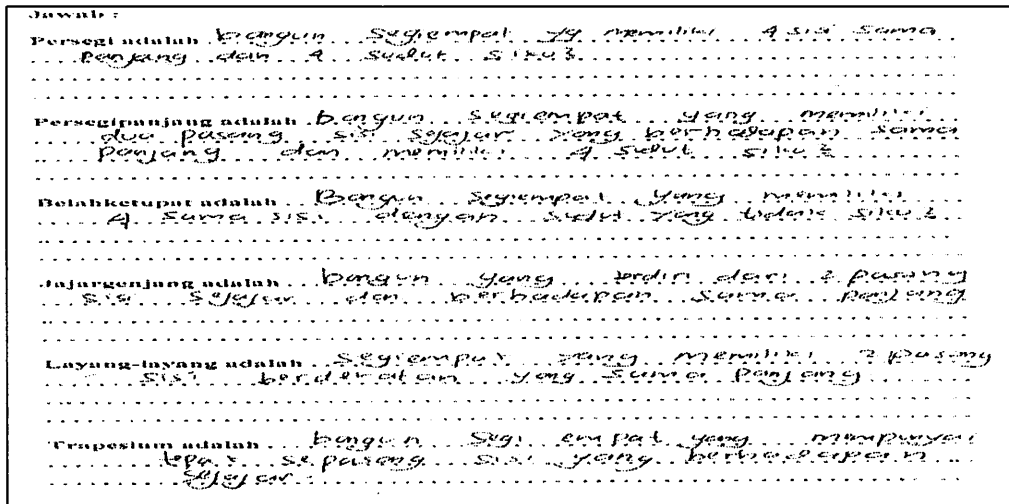 Jawab :
Persegi adalah bangun segiempat yg memiliki 4 sisi sama
panjang dan 4 sudut siku2
Persegipanjang adalah bangun segiempat yang memiliki
dua pasang sisi sejajar yang berhadapan sama
panjang dan memiliki 4 sudut siku2
Belahketupat adalah Bangun segiempat yang memiliki
4 sama sisi dengan sudut yang tidak siku2
Jajargenjang adalah bangun yang terdiri dari 2 pasang
sisi sejajar dan berhadapan sama panjang
Layang-layang adalah segiempat yang memiliki 2 pasang
sisi berdekatan yang sama panjang
Trapesium adalah bangun segi empat yang mempunyai
tepat sepasang sisi yang berhadapan
sejajar